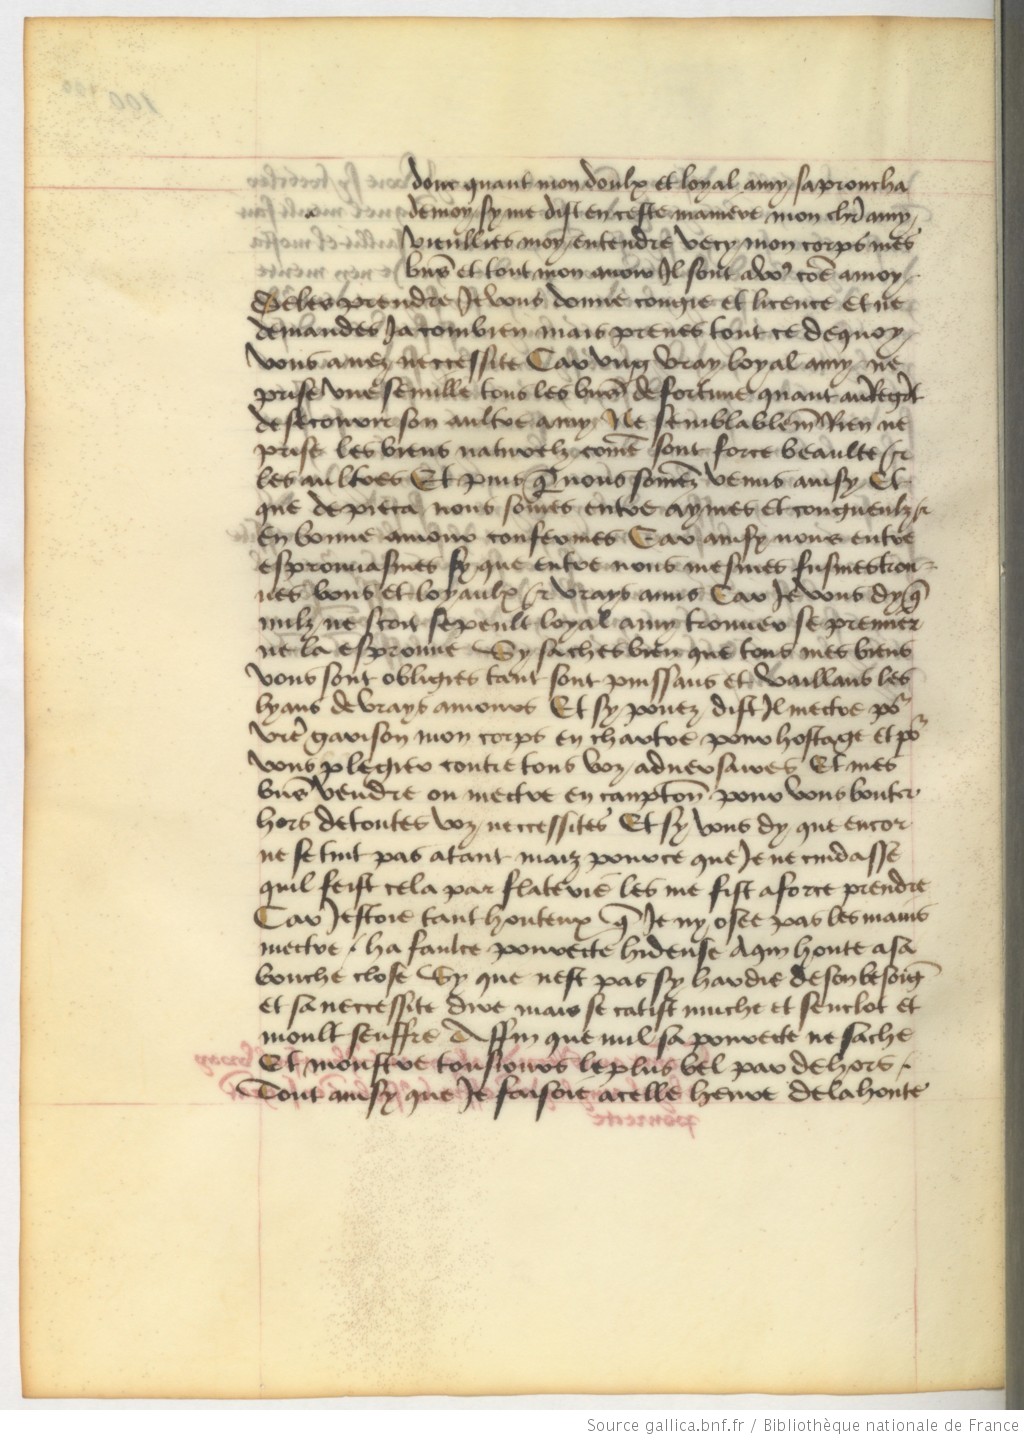 donc quant mon doulx et loyal amy saproucha
de moy sy me dist en ceste maniere mon chr̄ amy
vieullies moy entendre vecy mon corps mes
biēs et tout mon avoir Il sont a vo9 cōe a moy
De les prendre Je vous donne congie et licence et ne
demandes Ja combien mais prenes tout ce de quoy
vous avez neccessite Car ung vray loyal amy ne
prise une semille tous les biēs de fortune quant au regārt
de secourir son aultre amy Ne semblablem̄ Rien ne
prise les biens naturelz com̄e sont force beaulte et
les aultres Et puis q̄ nous som̄ez venus ainsy Et
que de pieca nous som̄es entre aymes et congneulz et
en bonne amour confermes Car ainsy nous entre
esprouvasmes sy que entre nous mesmes fusmes trou-
ves bons et loyaulx et vrays amis Car Je vous dy q̄
nulz ne scoit se peult loyal amy trouver se premier
ne la esprouve Sy saches bien que tous mes biens
vous sont obligies tant sont puissans et vaillans les
lyans de vrays amours Et sy povez dist Il mectre po2
vr̄e garison mon corps en chartre pour hostage et po2
vous plegier contre tous voz adversaires Et mes
biēs vendre ou mectre en canption̄ pour vous bouter
hors de toutes voz neccessites Et sy vous dy que encor
ne se tint pas atant maiz pour ce que Je ne cuidasse
quil feist cela par flaterie les me fist a force prendre
Car Jestoie tant honteux q̄ Je ny osee pas les mains
mectre / ha faulce povrecte hideuse A qui honte a sa
bouche close Sy que nest pas sy hardie de son besoiḡ
et sa neccessite dire mais se catist muche et senclot et
moult seuffre Affin que nul sa povrecte ne sache
Et monstre tousiours le plus bel par dehors /
Tout ainsy que Je faisoie a celle heure de la honte
Source gallica.bnf.fr / Bibliothèque nationale de France